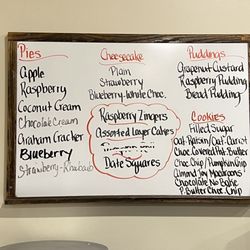 Pies
Apple
Raspberry
Coconut Cream
Chocolate Cream
Graham Cracker
Blueberry
Strawberry-Rhubarb
Cheesecake
Plain
Strawberry
Blueberry-White Choc.
Raspberry Zingers
Assorted Layer Cakes
Date Squares
Puddings
Grapenut Custard
Raspberry Pudding
Bread Pudding
Cookies
Filled Sugar
Oat-Raisin/Oat-Carrot
Choc Covered Nut-Butter
Choc Chip/Pumpkin Chip
Almond Joy Macaroons
Chocolate No Bake
P. Butter Choc Chip